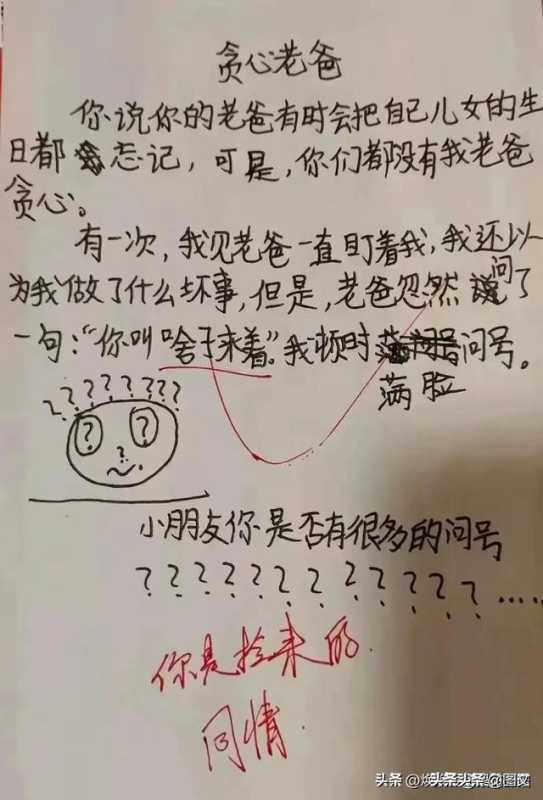 贪心老爸
你说你的老爸有时会把自己儿女的生
日都忘记，可是，你们都没有我老爸
贪心。
有一次，我见老爸一直盯着我，我还以
为我做了什么坏事，但是，老爸忽然问了
一句：“你叫啥子来着”。我顿时满脸问号。
? ? ? ? ? ? ? ?
? ?
?
小朋友你是否有很多的问号
? ? ? ? ? ? ? ? ? ? ? ? ......
你是捡来的
同情
头条 @图文